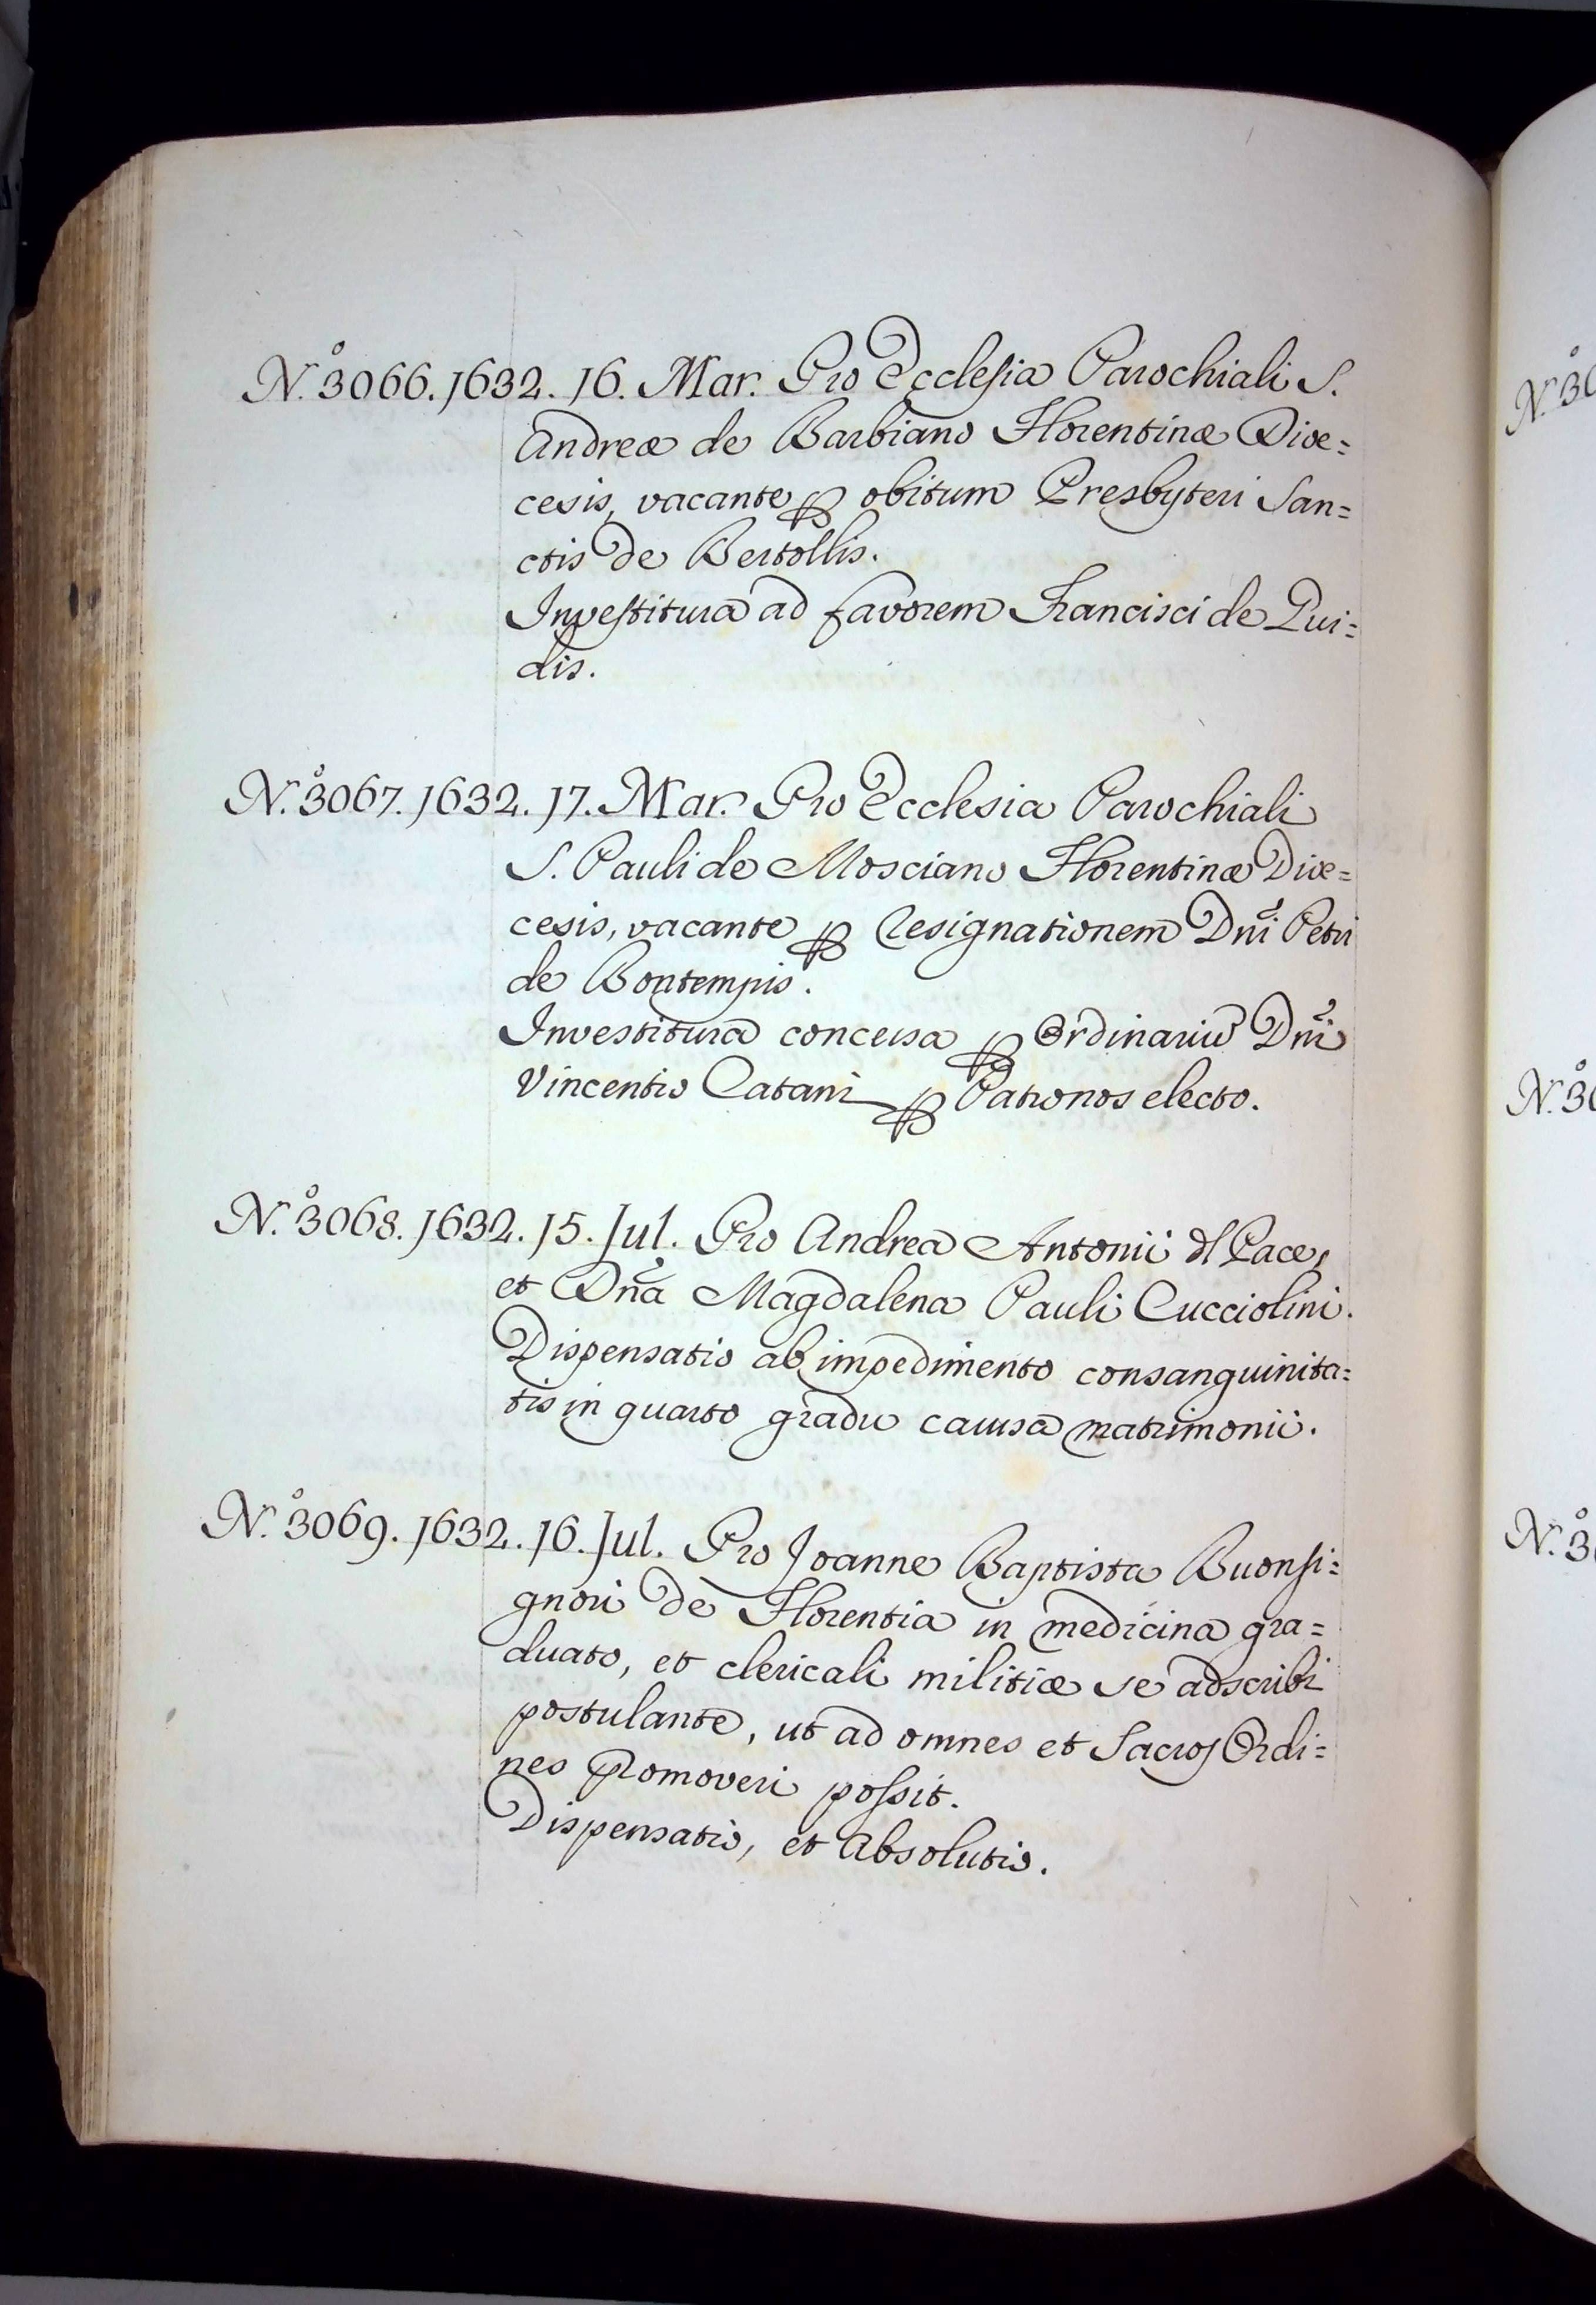 N.º 3066. 1632. 16. Mar. Pro Ecclesia Parochiali S.
Andreæ de Barbiano Florentinæ Diœ=
cesis, vacante ꝑ obitum Presbyteri San=
ctis de Bertollis.
Investitura ad favorem Francisci de Pui=
dis.
N.º 3067. 1632. 17. Mar. Pro Ecclesia Parochiali
S. Pauli de Mosciano Florentinæ Diœ=
cesis, vacante ꝑ Resignationem Dñi Petri
de Bontempis.
Investitura concessa ꝑ Ordinariũ Dñi
Vincentio Catani ꝑ Patronos electo.
N.º 3068. 1632. 15. Jul. Pro Andrea Antonii dl Pace,
et Dña Magdalena Pauli Cucciolini.
Dispensatio ab impedimento consanguinita=
tis in quarto gradu causa matrimonii.
N.º 3069. 1632. 16. Jul. Pro Joanne Baptista Buonsi=
gnori de Florentia in medicina gra=
duato, et clericali militiæ se adscribi
postulante, ut ad omnes et Sacros Ordi=
nes promoveri possit.
Dispensatio, et Absolutio.
N.º 30
N.º 30
N.º 3